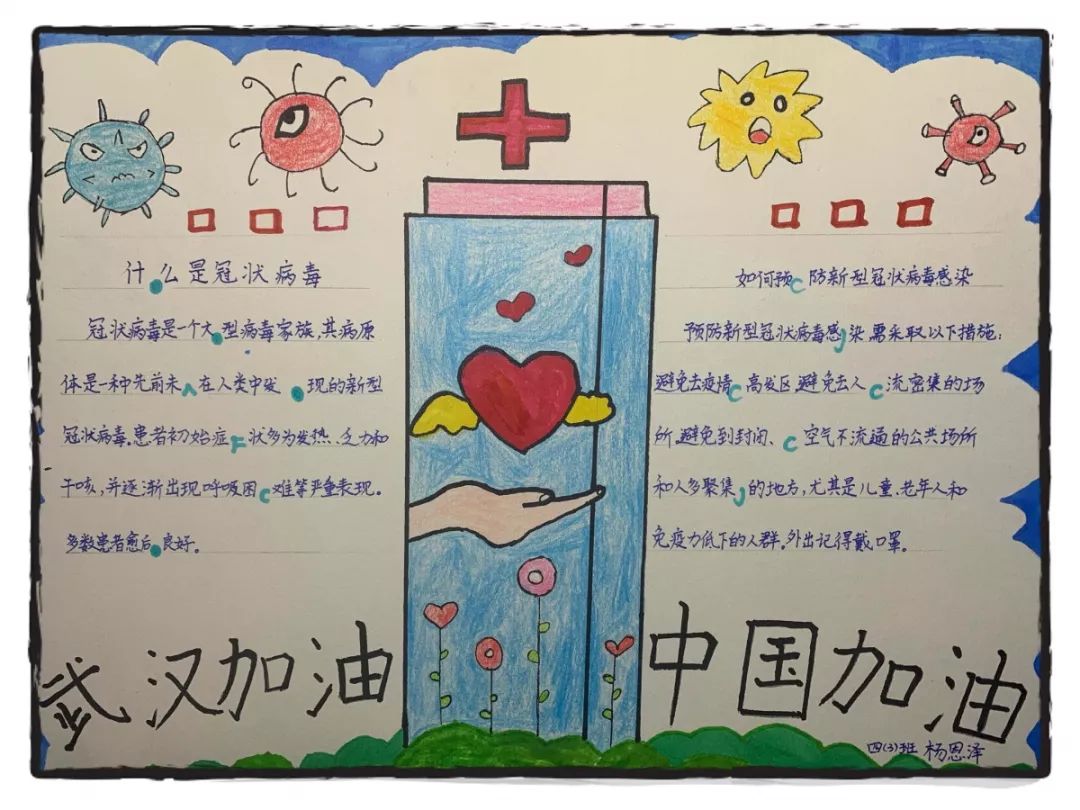 什么是冠状病毒
冠状病毒是一个大型病毒家族,其病原
体是一种先前未在人类中发现的新型
冠状病毒。患者初始症状多为发热、乏力和
干咳,并逐渐出现呼吸困难等严重表现。
多数患者愈后良好。
如何预防新型冠状病毒感染
预防新型冠状病毒感染需采取以下措施:
避免去疫情高发区避免去人流密集的场
所.避免到封闭、空气不流通的公共场所
和人多聚集的地方,尤其是儿童、老年人和
免疫力低下的人群。外出记得戴口罩。
武汉加油
中国加油
四(3)班 杨恩泽